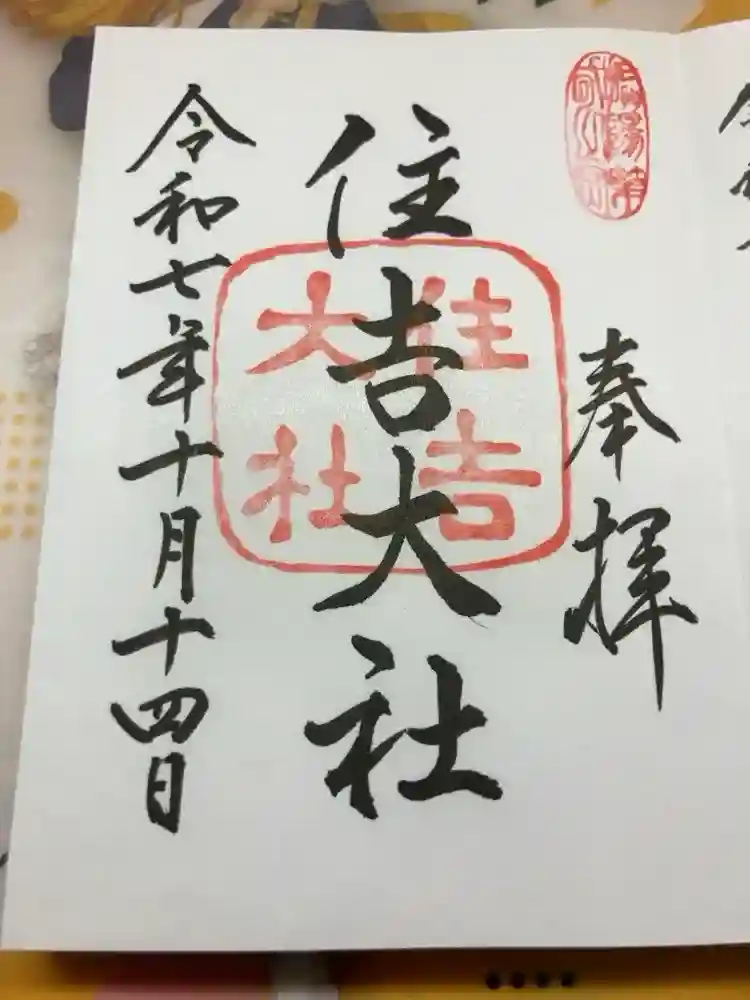 奉拝
住吉大社
住吉
大社
令和七年十月十四日